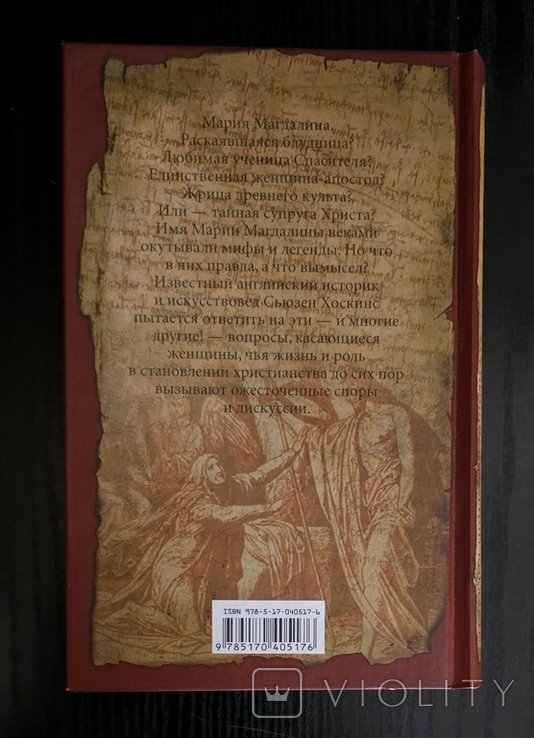 Мария Магдалина.
Раскаявшаяся блудница?
Любимая ученица Спасителя?
Единственная женщина-апостол?
Жрица древнего культа?
Или — тайная супруга Христа?
Имя Марии Магдалины веками
окутывали мифы и легенды. Но что
в них правда, а что вымысел?
Известный английский историк
и искусствовед Сьюзен Хоскинс
пытается ответить на эти — и многие
другие! — вопросы, касающиеся
женщины, чья жизнь и роль
в становлении христианства до сих пор
вызывают ожесточенные споры
и дискуссии.
ISBN 978-5-17-040517-6
9 785170 405176
VIOLITY